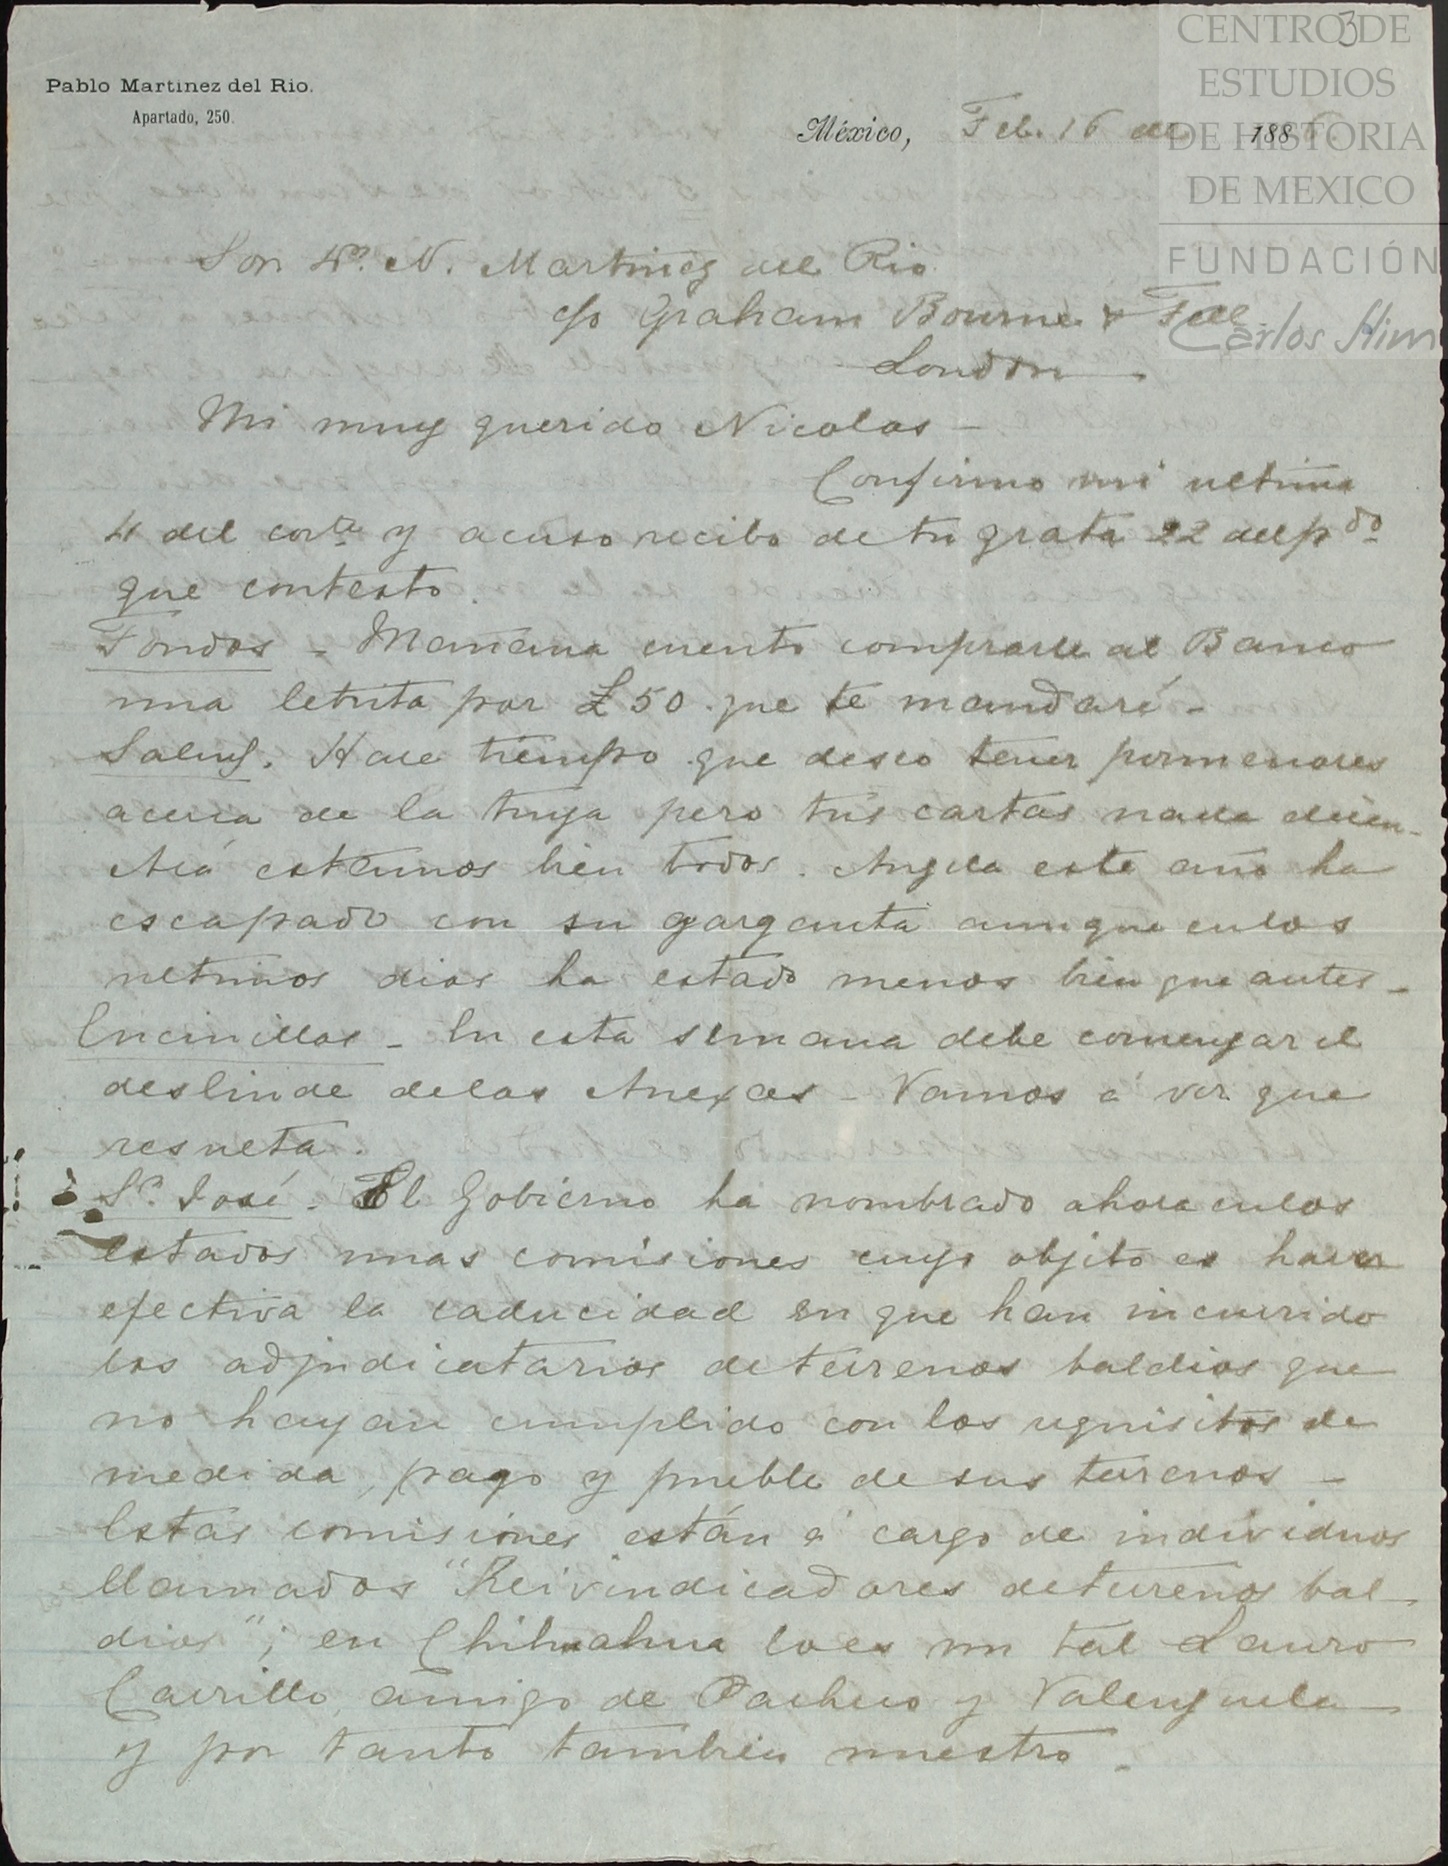 3
CENTRO DE
ESTUDIOS
DE HISTORIA
DE MEXICO
FUNDACIÓN
Carlos Slim
Pablo Martinez del Rio.
Apartado, 250.
México, Feb. 16 de 188
Sor Dn. N. Martinez del Rio
c/o Graham Bourne &
London
Mi muy querido Nicolas —
Confirmo mi ultima
4 del corte y acuso recibo de tu grata 22 del pdo
que contesto.
Fondos — Mañana cuento comprarle al Banco
una letrita por £50 que te mandaré —
Salud. Hace tiempo que deseo tener pormenores
acerca de la tuya pero tus cartas nada dicen —
Acá estamos bien todos. Angela este año ha
escapado con su garganta aunque en los
ultimos dias ha estado menos bien que antes —
Encinillas — En esta semana debe comenzar el
deslinde de las Anexas — Vamos á ver que
resulta.
Sn. José. El Gobierno ha nombrado ahora en los
estados unas comisiones cuyo objeto es hacer
efectiva la caducidad en que han incurrido
los adjudicatarios de terrenos baldios que
no hayan cumplido con los requisitos de
medida, pago y pueble de sus terrenos —
Estas comisiones están á cargo de individuos
llamados "Reivindicadores de terrenos bal-
dios"; en Chihuahua lo es un tal Lauro
Carrillo, amigo de Pacheco y Valenzuela
y por tanto tambien nuestro.